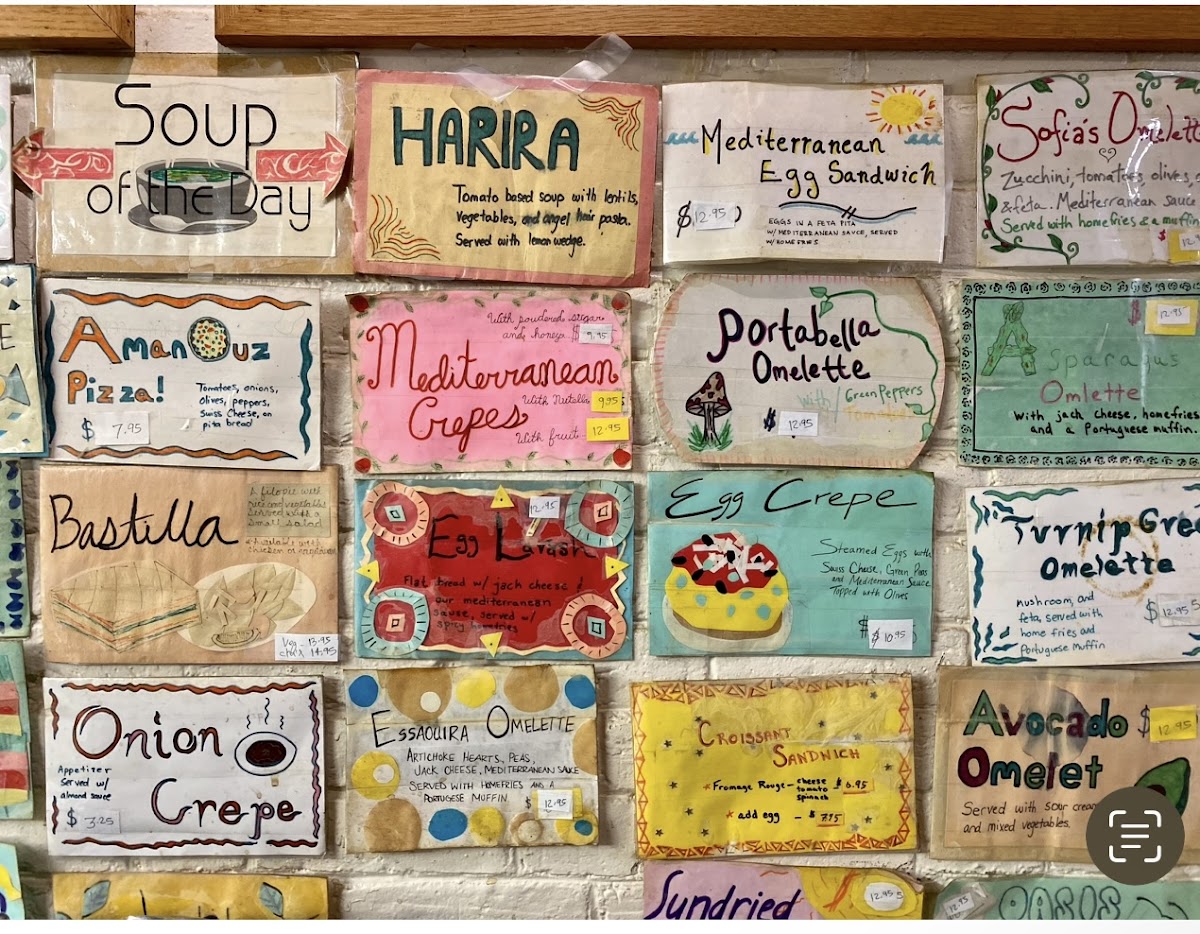 Soup
of the Day
HARIRA
Tomato based soup with lentils,
vegetables, and angel hair pasta.
Served with lemon wedge.
Mediterranean
Egg Sandwich
$12.95
EGGS IN A FETA PITA
W/ MEDITERRANEAN SAUCE, SERVED
W/ HOMEFRIES
Sofia's Omelett
Zucchini, tomatoes, olives,
& feta. Mediterranean Sauce
Served with homefries & a muffin
AmanOuz
Pizza!
Tomatoes, onions,
olives, peppers,
Swiss Cheese, on
pita bread
$ 7.95
With powdered sugar
and honey $ 9.95
Mediterranean
Crepes
With Nutella 9.95
With fruit - 12.95
Portabella
Omelette
with / Green Peppers
$ 12.95
$ 12.95
Asparagus
Omlette
With jack cheese, homefries
and a Portuguese muffin.
Bastilla
A filopie with
rice and vegetables
Served with a
Small salad
chicken or
Veg - 13.95
chix 14.95
12.95
Egg Lavash
Flat bread w/ jack cheese &
our mediterranean
sauce, served w/
spicy homefries
Egg Crepe
Steamed Eggs with
Swiss Cheese, Green Peas
and Mediterranean Sauce
Topped with Olives
$ 10.95
Turnip Gree
Omelette
mushroom, and
feta, served with
home fries and
Portuguese Muffin
$ 12.95
Onion
Crepe
Appetizer
Served w/
almond sauce
$ 3.25
ESSAOUIRA OMELETTE
ARTICHOKE HEARTS, PEAS,
JACK CHEESE, MEDITERRANEAN SAUCE
SERVED WITH HOMEFRIES AND A
PORTUGUESE MUFFIN $ 12.95
CROISSANT
SANDWICH
Fromage Rouge - cheese
tomato
spinach
$ 6.95
add egg - $ 7.95
Avocado
Omelet
$ 12.95
Served with sour cream
and mixed vegetables.
Sundried
12.95
12.95
OASIS